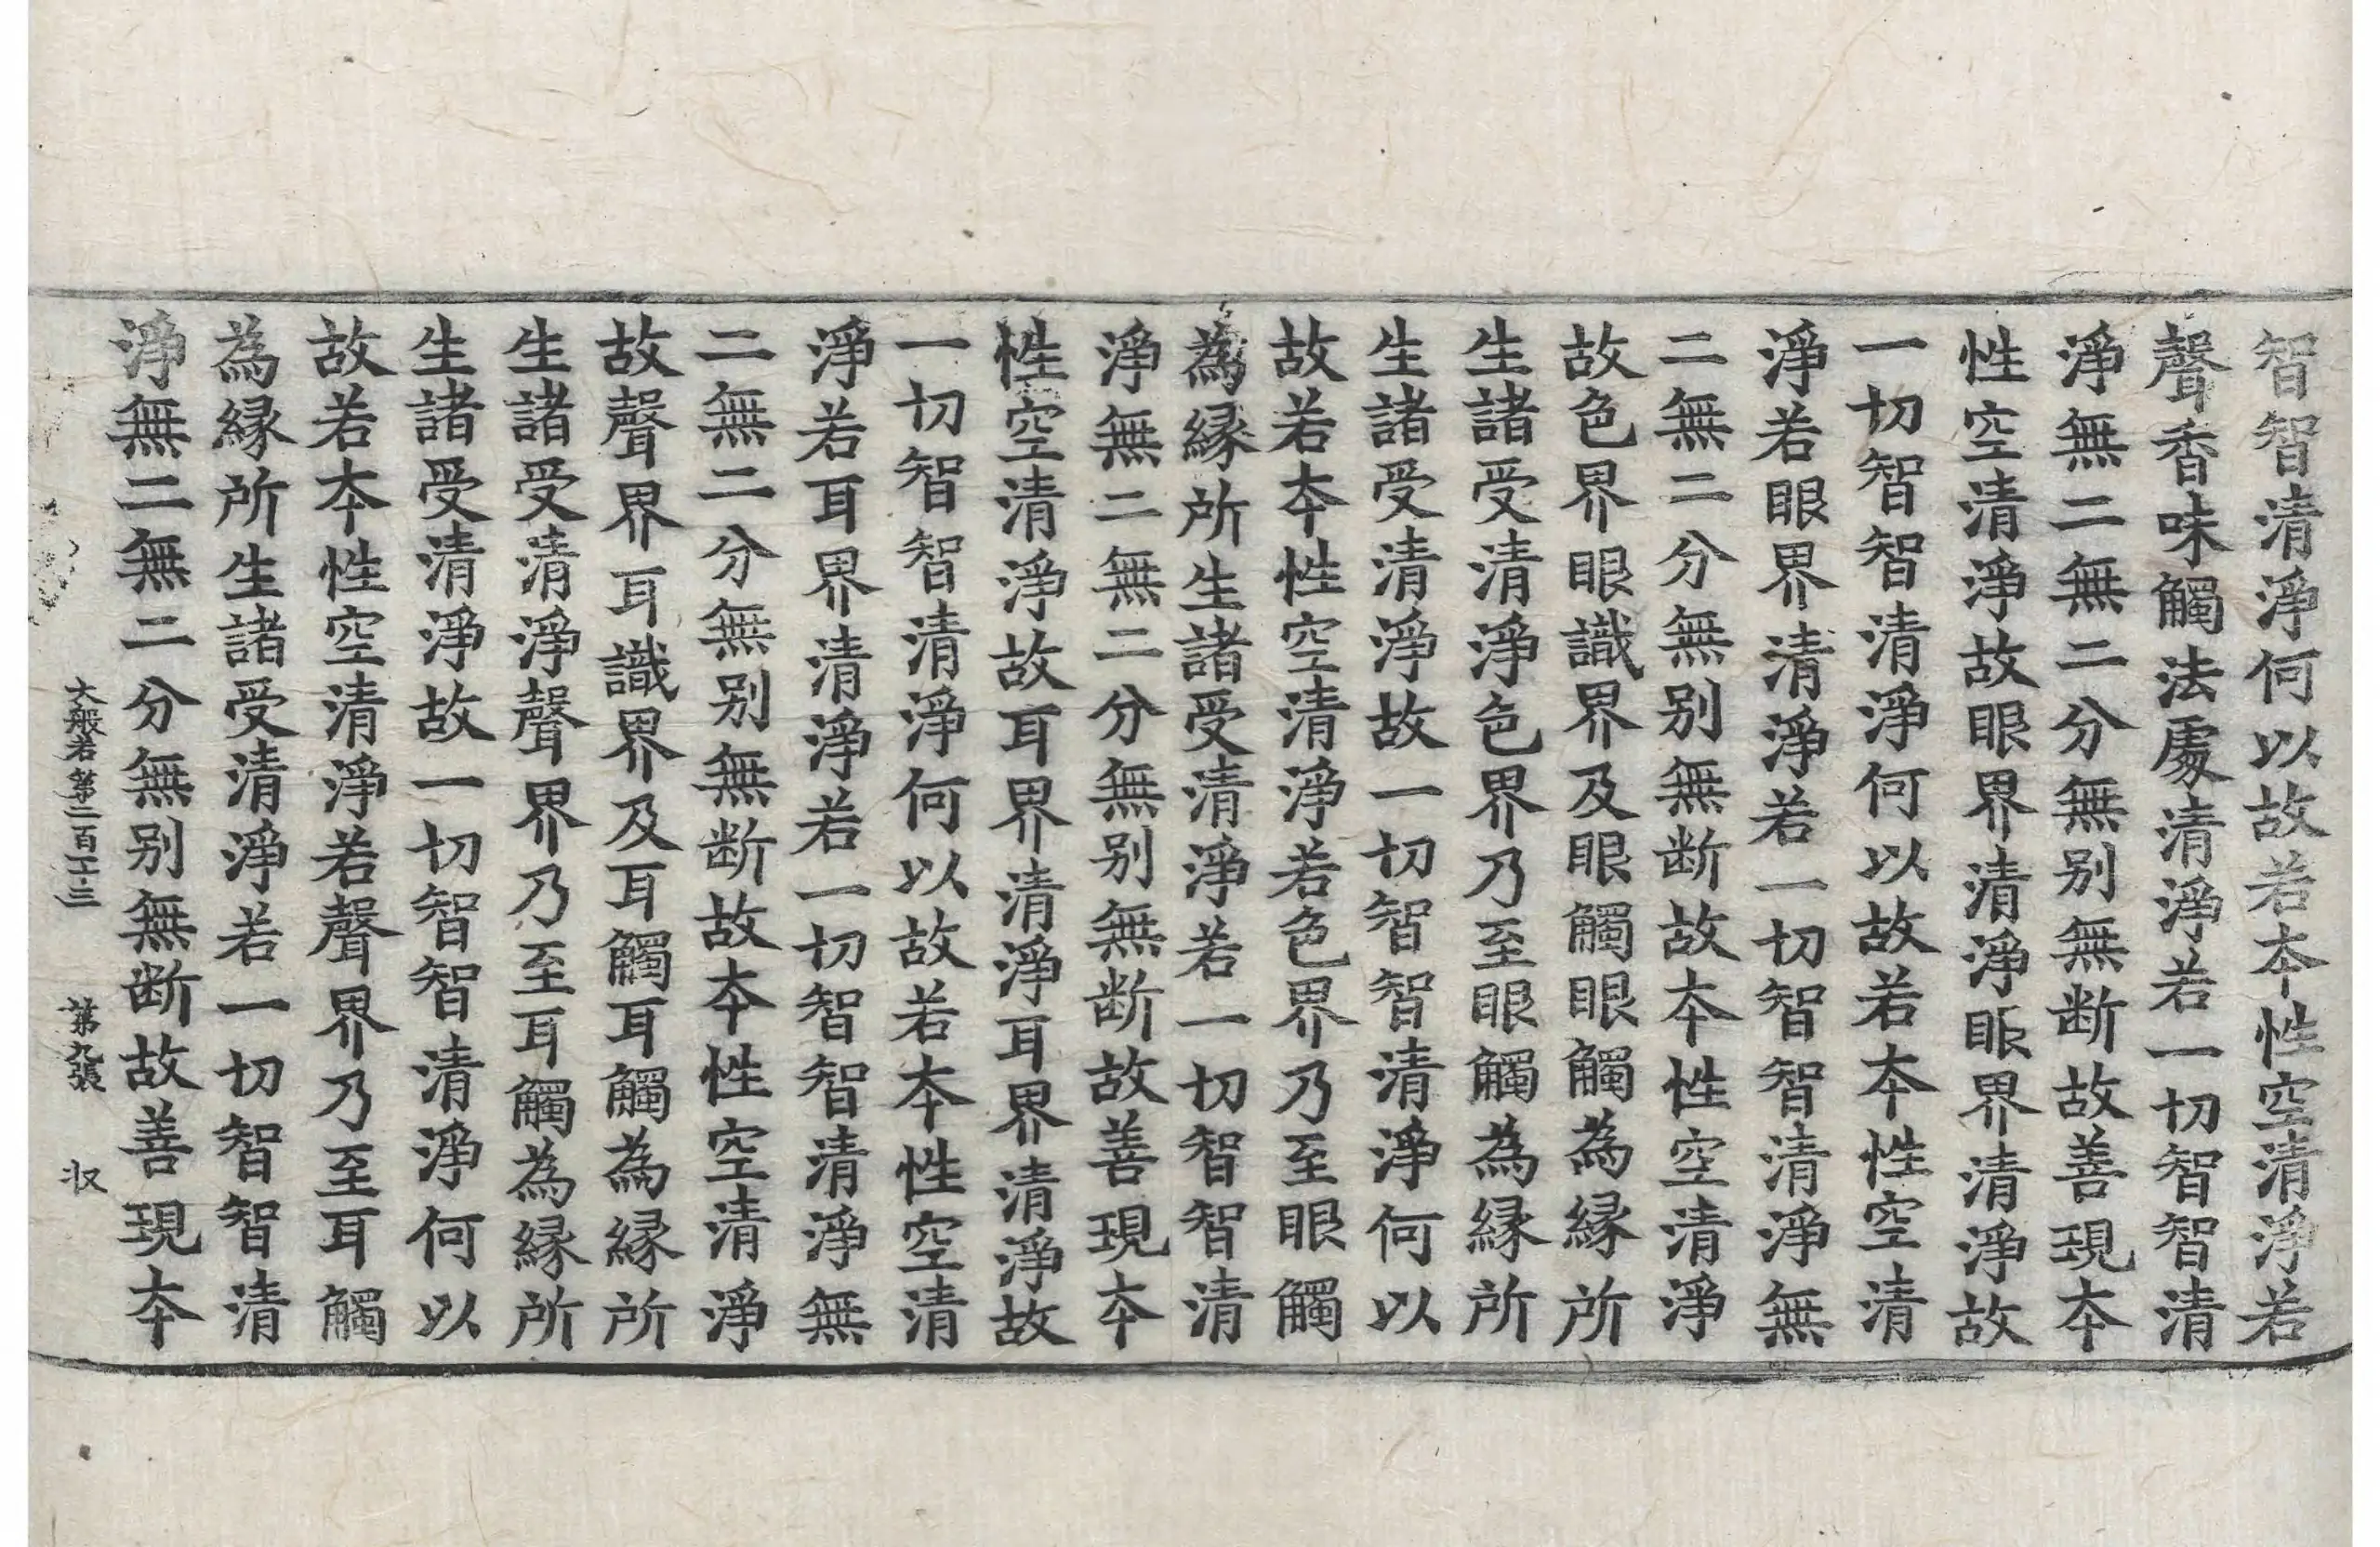 智智清淨何以故若本性空清淨若
聲香味觸法處清淨若一切智智清
淨無二無二分無別無断故善現本
性空清淨故眼界清淨眼界清淨故
一切智智清淨何以故若本性空清
淨若眼界清淨若一切智智清淨無
二無二分無別無断故本性空清淨
故色界眼識界及眼觸眼觸為縁所
生諸受清淨色界乃至眼觸為縁所
生諸受清淨故一切智智清淨何以
故若本性空清淨若色界乃至眼觸
為縁所生諸受清淨若一切智智清
淨無二無二分無別無断故善現本
性空清淨故耳界清淨耳界清淨故
一切智智清淨何以故若本性空清
淨若耳界清淨若一切智智清淨無
二無二分無別無断故本性空清淨
故聲界耳識界及耳觸耳觸為縁所
生諸受清淨聲界乃至耳觸為縁所
生諸受清淨故一切智智清淨何以
故若本性空清淨若聲界乃至耳觸
為縁所生諸受清淨若一切智智清
淨無二無二分無別無断故善現本
大般若第二百一十三 第九張 収